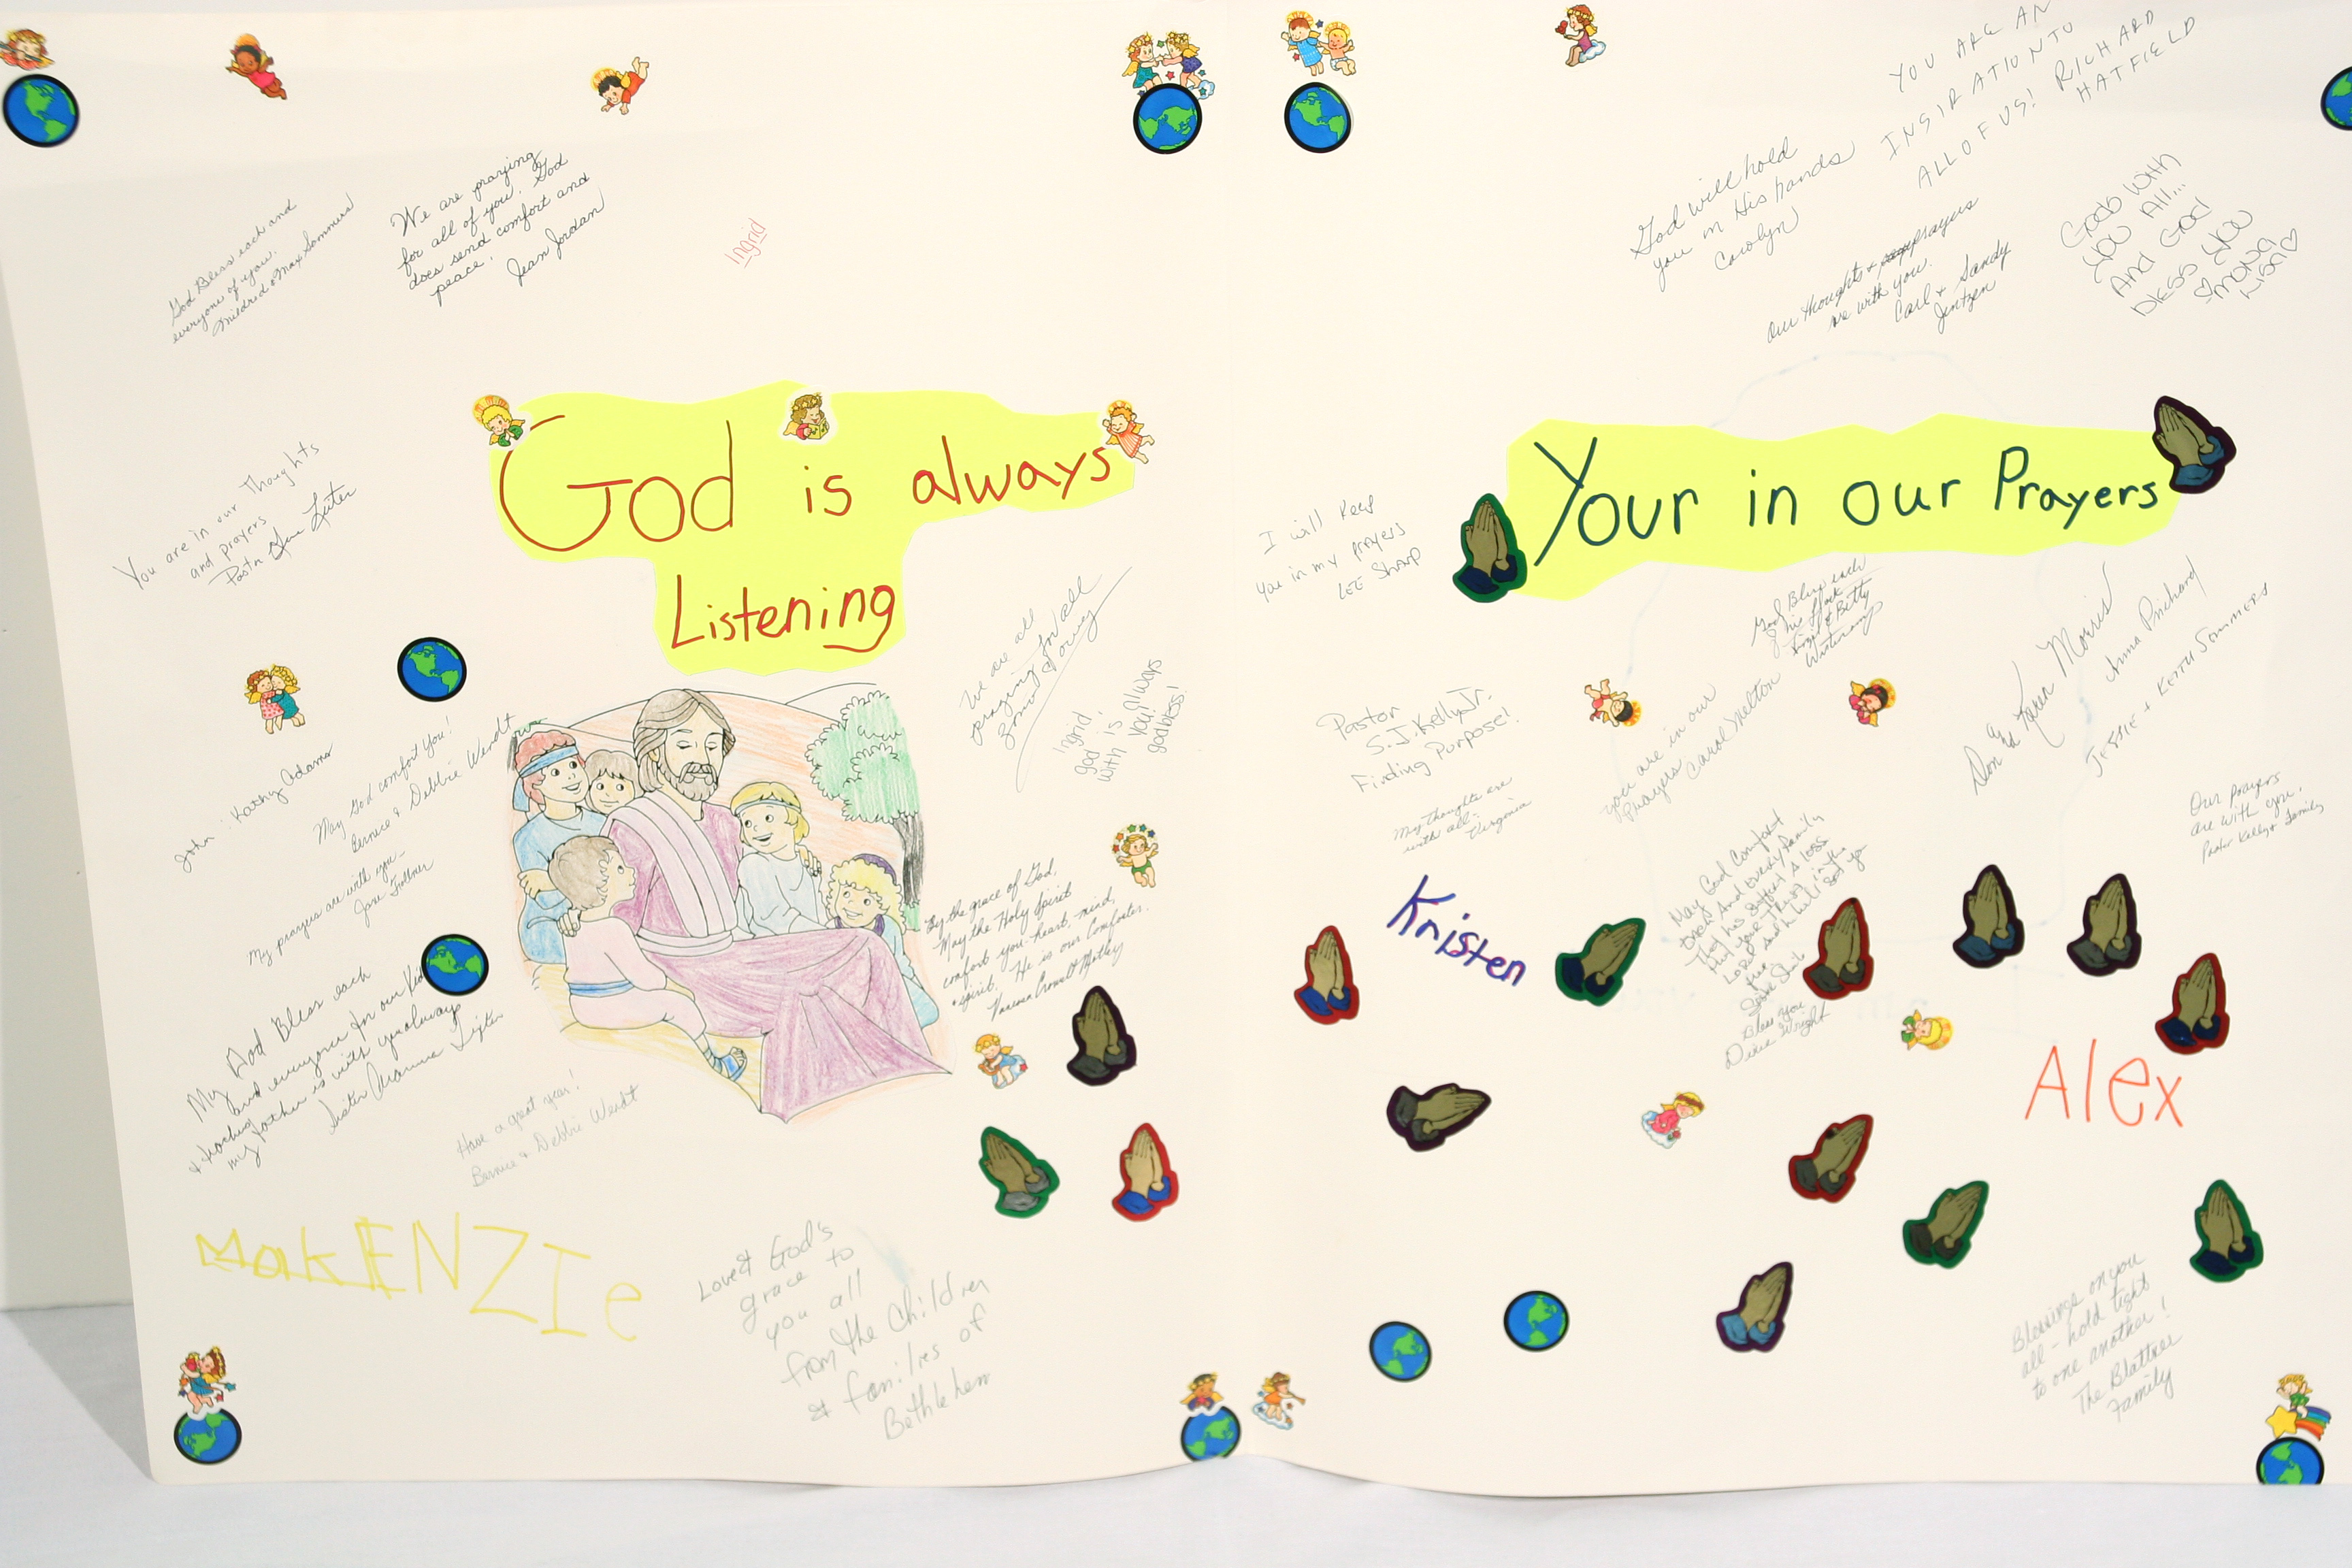 God Bless each and
everyone of you.
Mildred & Max Sommers
We are praying
for all of you. God
does send comfort and
peace.
Jean Jordan
Ingrid
God is always
Listening
You are in our Thoughts
and prayers
Pastor
John : Kathy Adams
May God comfort You!
Bernice & Debbie Wendt
My prayers are with you-
Jane
My God Bless each
and everyone for our
my father is with you always
Sister
Have a great year!
Bernice & Debbie Wendt
MakENZIe
We are all
praying for all
Ingrid,
god is
with you! Always
godbless!
By the grace of God,
May the Holy Spirit
comfort you heart, mind,
& spirit. He is our Comforter.
Vanessa
Love & God's
grace to
you all
from the Children
& families of
Bethlehem
YOU ARE AN
INSIRATION TO
ALL OF US!
RICHARD
HATFIELD
God will hold
you in His hands
Carolyn
Our thoughts & prayers
are with you.
Carl & Sandy
Jentzen
you All...
And God
bless you
Your in our Prayers
I will keep
you in my prayers
LEE Sharp
God Bless each
Virgil & Betty
Pastor
S.J. Kelly Jr.
Finding Purpose!
My thoughts are
with all-
Virginia
you are in our
Prayers Carol Melton
Don and Karen Morris
Anna Prichard
JESSIE + KEITH SOMMERS
Our prayers
are with you,
Pastor Kelly & family
Kristen
May God Comfort
And every family
That has suffered A loss
Lord And he will
Bless you
Diane Wright
Alex
Blessings on you
all - hold tight
to one another!
The Blattner
Family